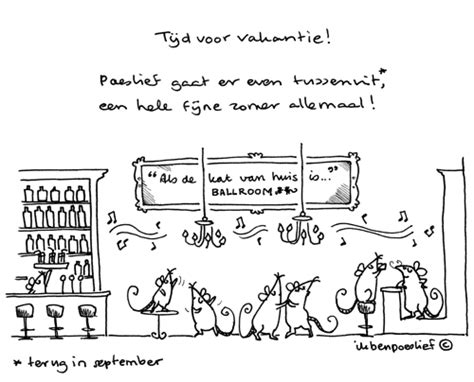 Tijd voor vakantie!
Poeslief gaat er even tussenuit,*
een hele fijne zomer allemaal!
"Als de kat van huis is..."
BALLROOM
ikbenpoeslief ©
* terug in september